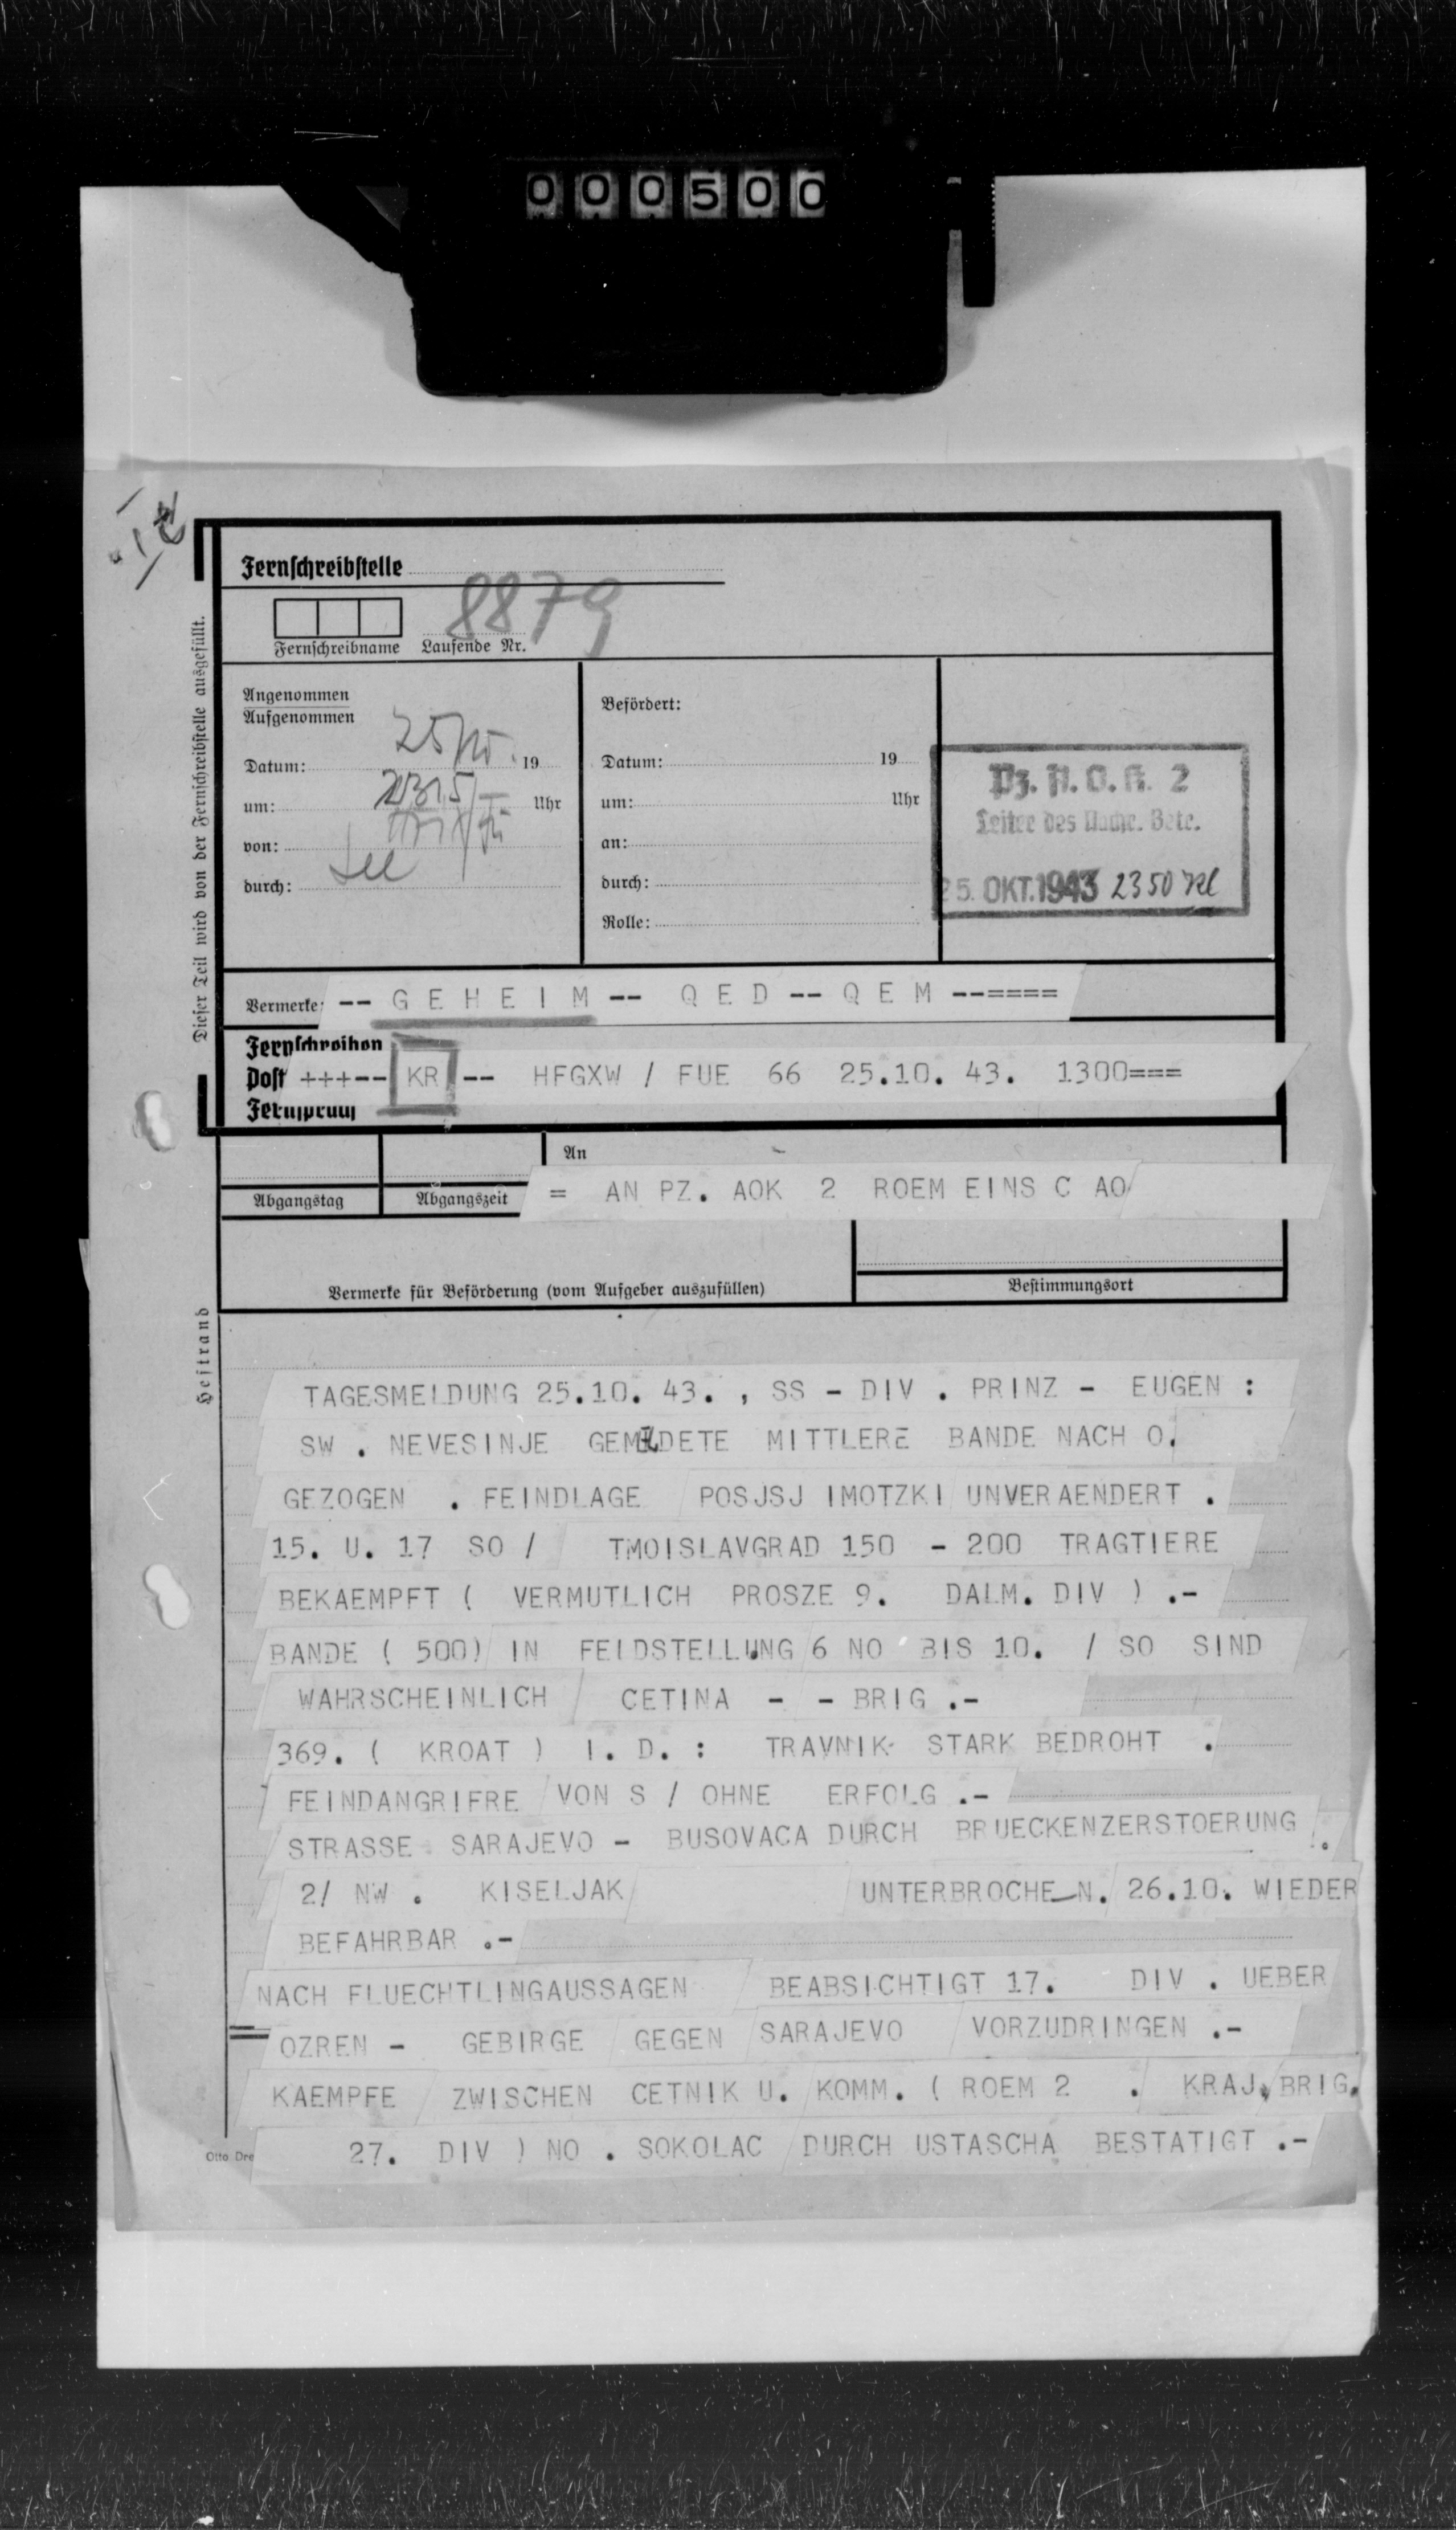 000500
Fernschreibstelle
8879
Fernschreibname Laufende Nr.
Angenommen
Aufgenommen
Datum: 19
um: Uhr
von:
durch:
Befördert:
Datum: 19
um: Uhr
an:
durch:
Rolle:
Pz. A.O.K. 2
Leiter des Nachr. Betr.
25. OKT. 1943 2350
Dieser Teil wird von der Fernschreibstelle ausgefüllt.
Vermerke: -- G E H E I M -- Q E D -- Q E M --====
Fernschreiben
Post +++-- KR -- HFGXW / FUE 66 25.10. 43. 1300===
Fernspruch
An
Abgangstag Abgangszeit = AN PZ. AOK 2 ROEM EINS C AO
Vermerke für Beförderung (vom Aufgeber auszufüllen) Bestimmungsort
Heftrand
TAGESMELDUNG 25.10. 43. , SS - DIV . PRINZ - EUGEN :
SW . NEVESINJE GEMELDETE MITTLERE BANDE NACH O.
GEZOGEN . FEINDLAGE POSJSJ IMOTZKI UNVERAENDERT .
15. U. 17 SO / TMOISLAVGRAD 150 - 200 TRAGTIERE
BEKAEMPFT ( VERMUTLICH PROSZE 9. DALM. DIV ) .-
BANDE ( 500) IN FELDSTELLUNG 6 NO BIS 10. / SO SIND
WAHRSCHEINLICH CETINA - - BRIG .-
369. ( KROAT ) I. D. : TRAVNIK STARK BEDROHT .
FEINDANGRIFRE VON S / OHNE ERFOLG .-
STRASSE SARAJEVO - BUSOVACA DURCH BRUECKENZERSTOERUNG .
2/ NW . KISELJAK UNTERBROCHE_N. 26.10. WIEDER
BEFAHRBAR .-
NACH FLUECHTLINGAUSSAGEN BEABSICHTIGT 17. DIV . UEBER
OZREN - GEBIRGE GEGEN SARAJEVO VORZUDRINGEN .-
KAEMPFE ZWISCHEN CETNIK U. KOMM. ( ROEM 2 . KRAJ. BRIG.
27. DIV ) NO . SOKOLAC DURCH USTASCHA BESTATIGT .-
Otto Dre